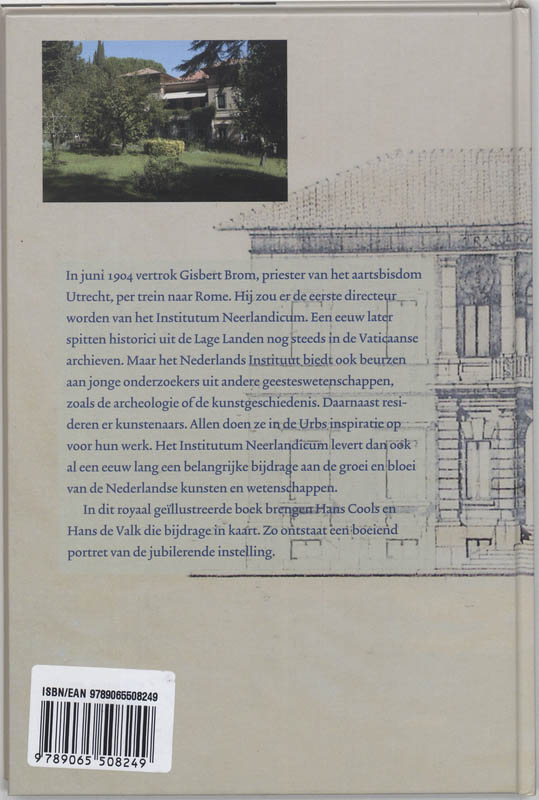 In juni 1904 vertrok Gisbert Brom, priester van het aartsbisdom
Utrecht, per trein naar Rome. Hij zou er de eerste directeur
worden van het Institutum Neerlandicum. Een eeuw later
spitten historici uit de Lage Landen nog steeds in de Vaticaanse
archieven. Maar het Nederlands Instituut biedt ook beurzen
aan jonge onderzoekers uit andere geesteswetenschappen,
zoals de archeologie of de kunstgeschiedenis. Daarnaast resi-
deren er kunstenaars. Allen doen ze in de Urbs inspiratie op
voor hun werk. Het Institutum Neerlandicum levert dan ook
al een eeuw lang een belangrijke bijdrage aan de groei en bloei
van de Nederlandse kunsten en wetenschappen.
In dit royaal geïllustreerde boek brengen Hans Cools en
Hans de Valk die bijdrage in kaart. Zo ontstaat een boeiend
portret van de jubilerende instelling.
ISBN/EAN 9789065508249
9 789065 508249